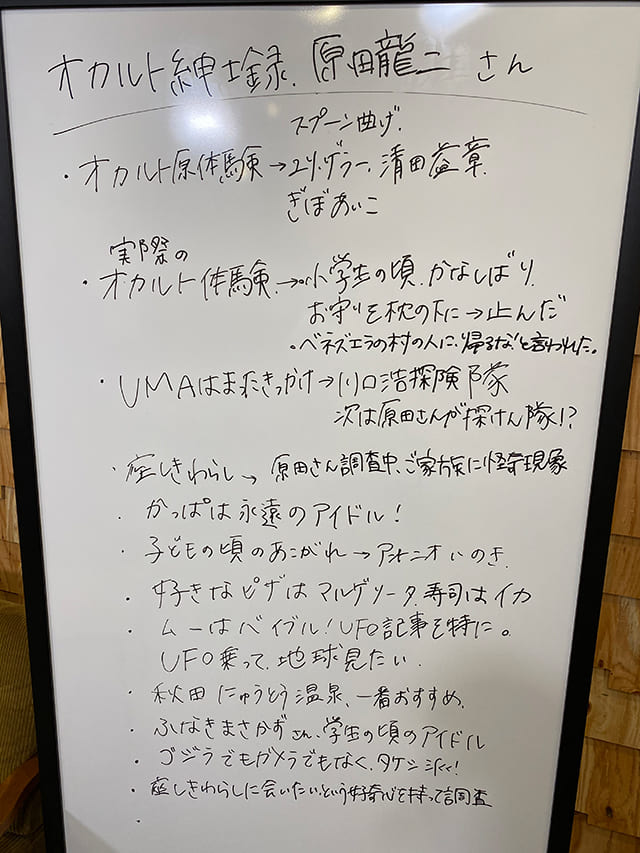 オカルト紳士録.原田龍二さん
スプーン曲げ.
・オカルト原体験→ユリ.ゲラー.清田益章.
ぎぼあいこ
実際の
・オカルト体験.→小学生の頃.かなしばり.
お守りを枕の下に→止んだ
。ベネズエラの村の人に.帰るなと言われた。
・UMAはまったきっかけ→川口浩探険隊
次は原田さんが探けん隊!?
・座しきわらし→原田さん調査中、ご家族に怪奇現象
・かっぱは永遠のアイドル!
・子どもの頃のあこがれ→アントニオいのき.
・好きなピザはマルゲリータ.寿司はイカ
・ムーはバイブル!UFO記事を特に。
UFO乗って、地球見たい.
・秋田にゅうとう温泉、一番おすすめ.
・ふなきまさかずさん、学生の頃のアイドル
・ゴジラでもガメラでもなく.タケシ派!
・座しきわらしに会いたいという好奇心を持って調査
・